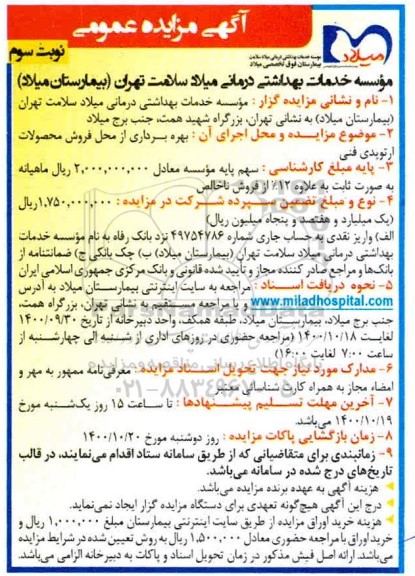 آگهی مزایده عمومی
نوبت سوم
میلاد
موسسه خدمات بهداشتی درمانی میلاد سلامت
بیمارستان فوق تخصصی میلاد
مؤسسه خدمات بهداشتی درمانی میلاد سلامت تهران (بیمارستان میلاد)
۱- نام و نشانی مزایده گزار : مؤسسه خدمات بهداشتی درمانی میلاد سلامت تهران
(بیمارستان میلاد) به نشانی تهران، بزرگراه شهید همت، جنب برج میلاد
۲- موضوع مزایــده و محل اجرای آن : بهره برداری از محل فروش محصولات
ارتوپدی فنی
۳- پایه مبلغ کارشناسی : سهم پایه مؤسسه معادل ۲,۰۰۰,۰۰۰,۰۰۰ ریال ماهیانه
به صورت ثابت به علاوه ۱۲٪ از فروش ناخالص
۴- نوع و مبلغ تضمین سپرده شرکت در مزایده : ۱,۷۵۰,۰۰۰,۰۰۰ ریال
(یک میلیارد و هفتصد و پنجاه میلیون ریال)
الف) واریز نقدی به حساب جاری شماره ۴۹۷۵۴۷۸۶ نزد بانک رفاه به نام مؤسسه خدمات
بهداشتی درمانی میلاد سلامت تهران (بیمارستان میلاد) ب) چک بانکی ج) ضمانتنامه از
بانک‌ها و مراجع صادر کننده مجاز و تأیید شده قانونی و بانک مرکزی جمهوری اسلامی ایران
۵- نحوه دریافت اسناد : مراجعه به سایت اینترنتی بیمارستان میلاد به آدرس
www.miladhospital.com و یا مراجعه مستقیم به نشانی تهران، بزرگراه همت،
جنب برج میلاد، بیمارستان میلاد، طبقه همکف، واحد دبیرخانه از تاریخ ۱۴۰۰/۰۹/۳۰
لغایت ۱۴۰۰/۱۰/۱۸ (مراجعه حضوری در روزهای اداری از شنبه الی چهارشنبه از
ساعت ۷:۰۰ لغایت ۱۶:۰۰)
۶- مدارک مورد نیاز جهت تحویل اسناد مزایده : معرفی‌نامه ممهور به مهر و
امضاء مجاز به همراه کارت شناسائی معتبر
۷- آخرین مهلت تسلیم پیشنهادها : تا ساعت ۱۵ روز یک‌شنبه مورخ
۱۴۰۰/۱۰/۱۹ می‌باشد.
۸- زمان بازگشایی پاکات مزایده : روز دوشنبه مورخ ۱۴۰۰/۱۰/۲۰
۹- زمانبندی برای متقاضیانی که از طریق سامانه ستاد اقدام می‌نمایند، در قالب
تاریخ‌های درج شده در سامانه می‌باشد.
هزینه آگهی به عهده برنده مزایده می‌باشد.
درج این آگهی هیچ‌گونه تعهدی برای دستگاه مزایده گزار ایجاد نمی‌نماید.
هزینه خرید اوراق مزایده از طریق سایت اینترنتی بیمارستان مبلغ ۱,۰۰۰,۰۰۰ ریال و
خرید اوراق با مراجعه حضوری معادل ۱,۵۰۰,۰۰۰ ریال به روش تعیین شده در شرایط مزایده
می‌باشد. ارائه اصل فیش مذکور در زمان تحویل اسناد و پاکات به دبیرخانه الزامی می‌باشد.